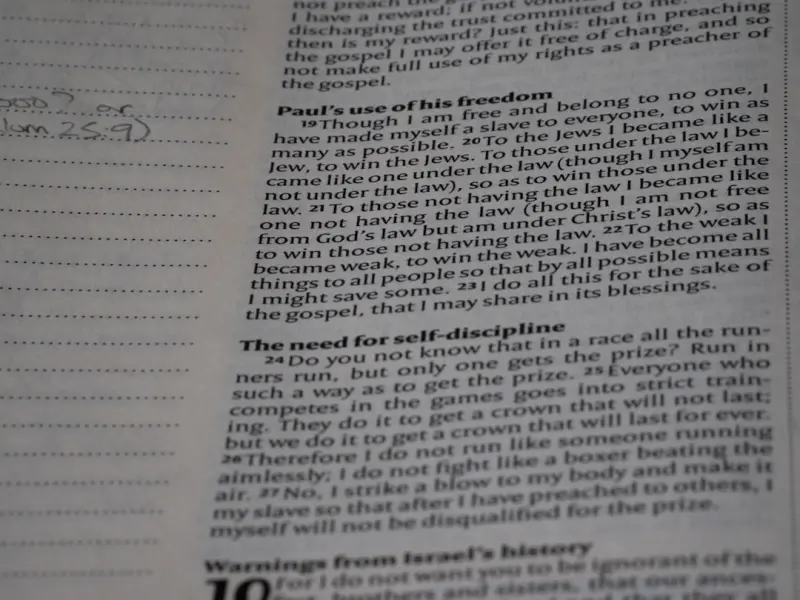 not preach the
I have a reward; if not
discharging the trust committed to me.
then is my reward? Just this: that in preaching
the gospel I may offer it free of charge, and so
not make full use of my rights as a preacher of
the gospel.
Paul's use of his freedom
19 Though I am free and belong to no one, I
have made myself a slave to everyone, to win as
many as possible. 20 To the Jews I became like a
Jew, to win the Jews. To those under the law I be-
came like one under the law (though I myself am
not under the law), so as to win those under the
law. 21 To those not having the law I became like
one not having the law (though I am not free
from God's law but am under Christ's law), so as
to win those not having the law. 22 To the weak I
became weak, to win the weak. I have become all
things to all people so that by all possible means
I might save some. 23 I do all this for the sake of
the gospel, that I may share in its blessings.
The need for self-discipline
24 Do you not know that in a race all the run-
ners run, but only one gets the prize? Run in
such a way as to get the prize. 25 Everyone who
competes in the games goes into strict train-
ing. They do it to get a crown that will not last;
but we do it to get a crown that will last for ever.
26 Therefore I do not run like someone running
aimlessly; I do not fight like a boxer beating the
air. 27 No, I strike a blow to my body and make it
my slave so that after I have preached to others, I
myself will not be disqualified for the prize.
Warnings from Israel's history
10 For I do not want you to be ignorant of the
brothers and sisters, that our ances-
that they all
or
25:9)